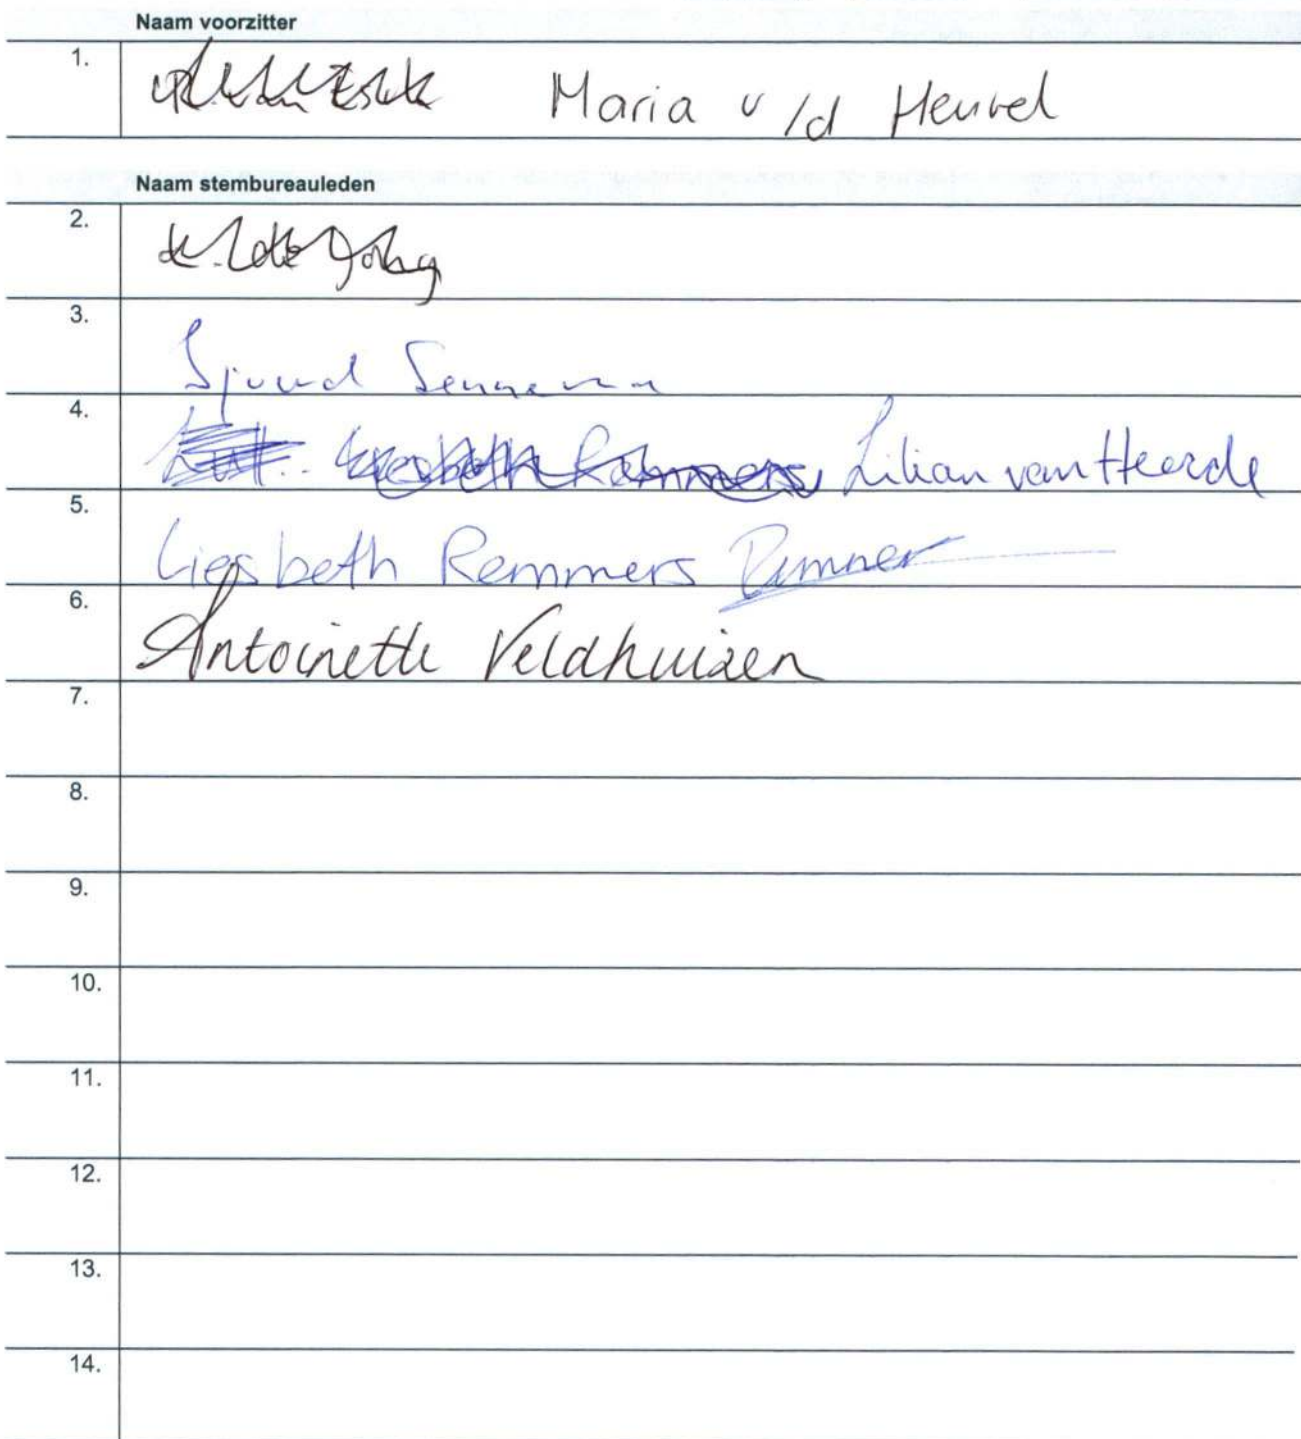 Naam voorzitter
1. Maria v/d Heuvel
Naam stembureauleden
2.
3. Sjoerd
4. Liesbeth Remmers Lilian van Heerde
5. Liesbeth Remmers
6. Antoinette Veldhuizen
7.
8.
9.
10.
11.
12.
13.
14.